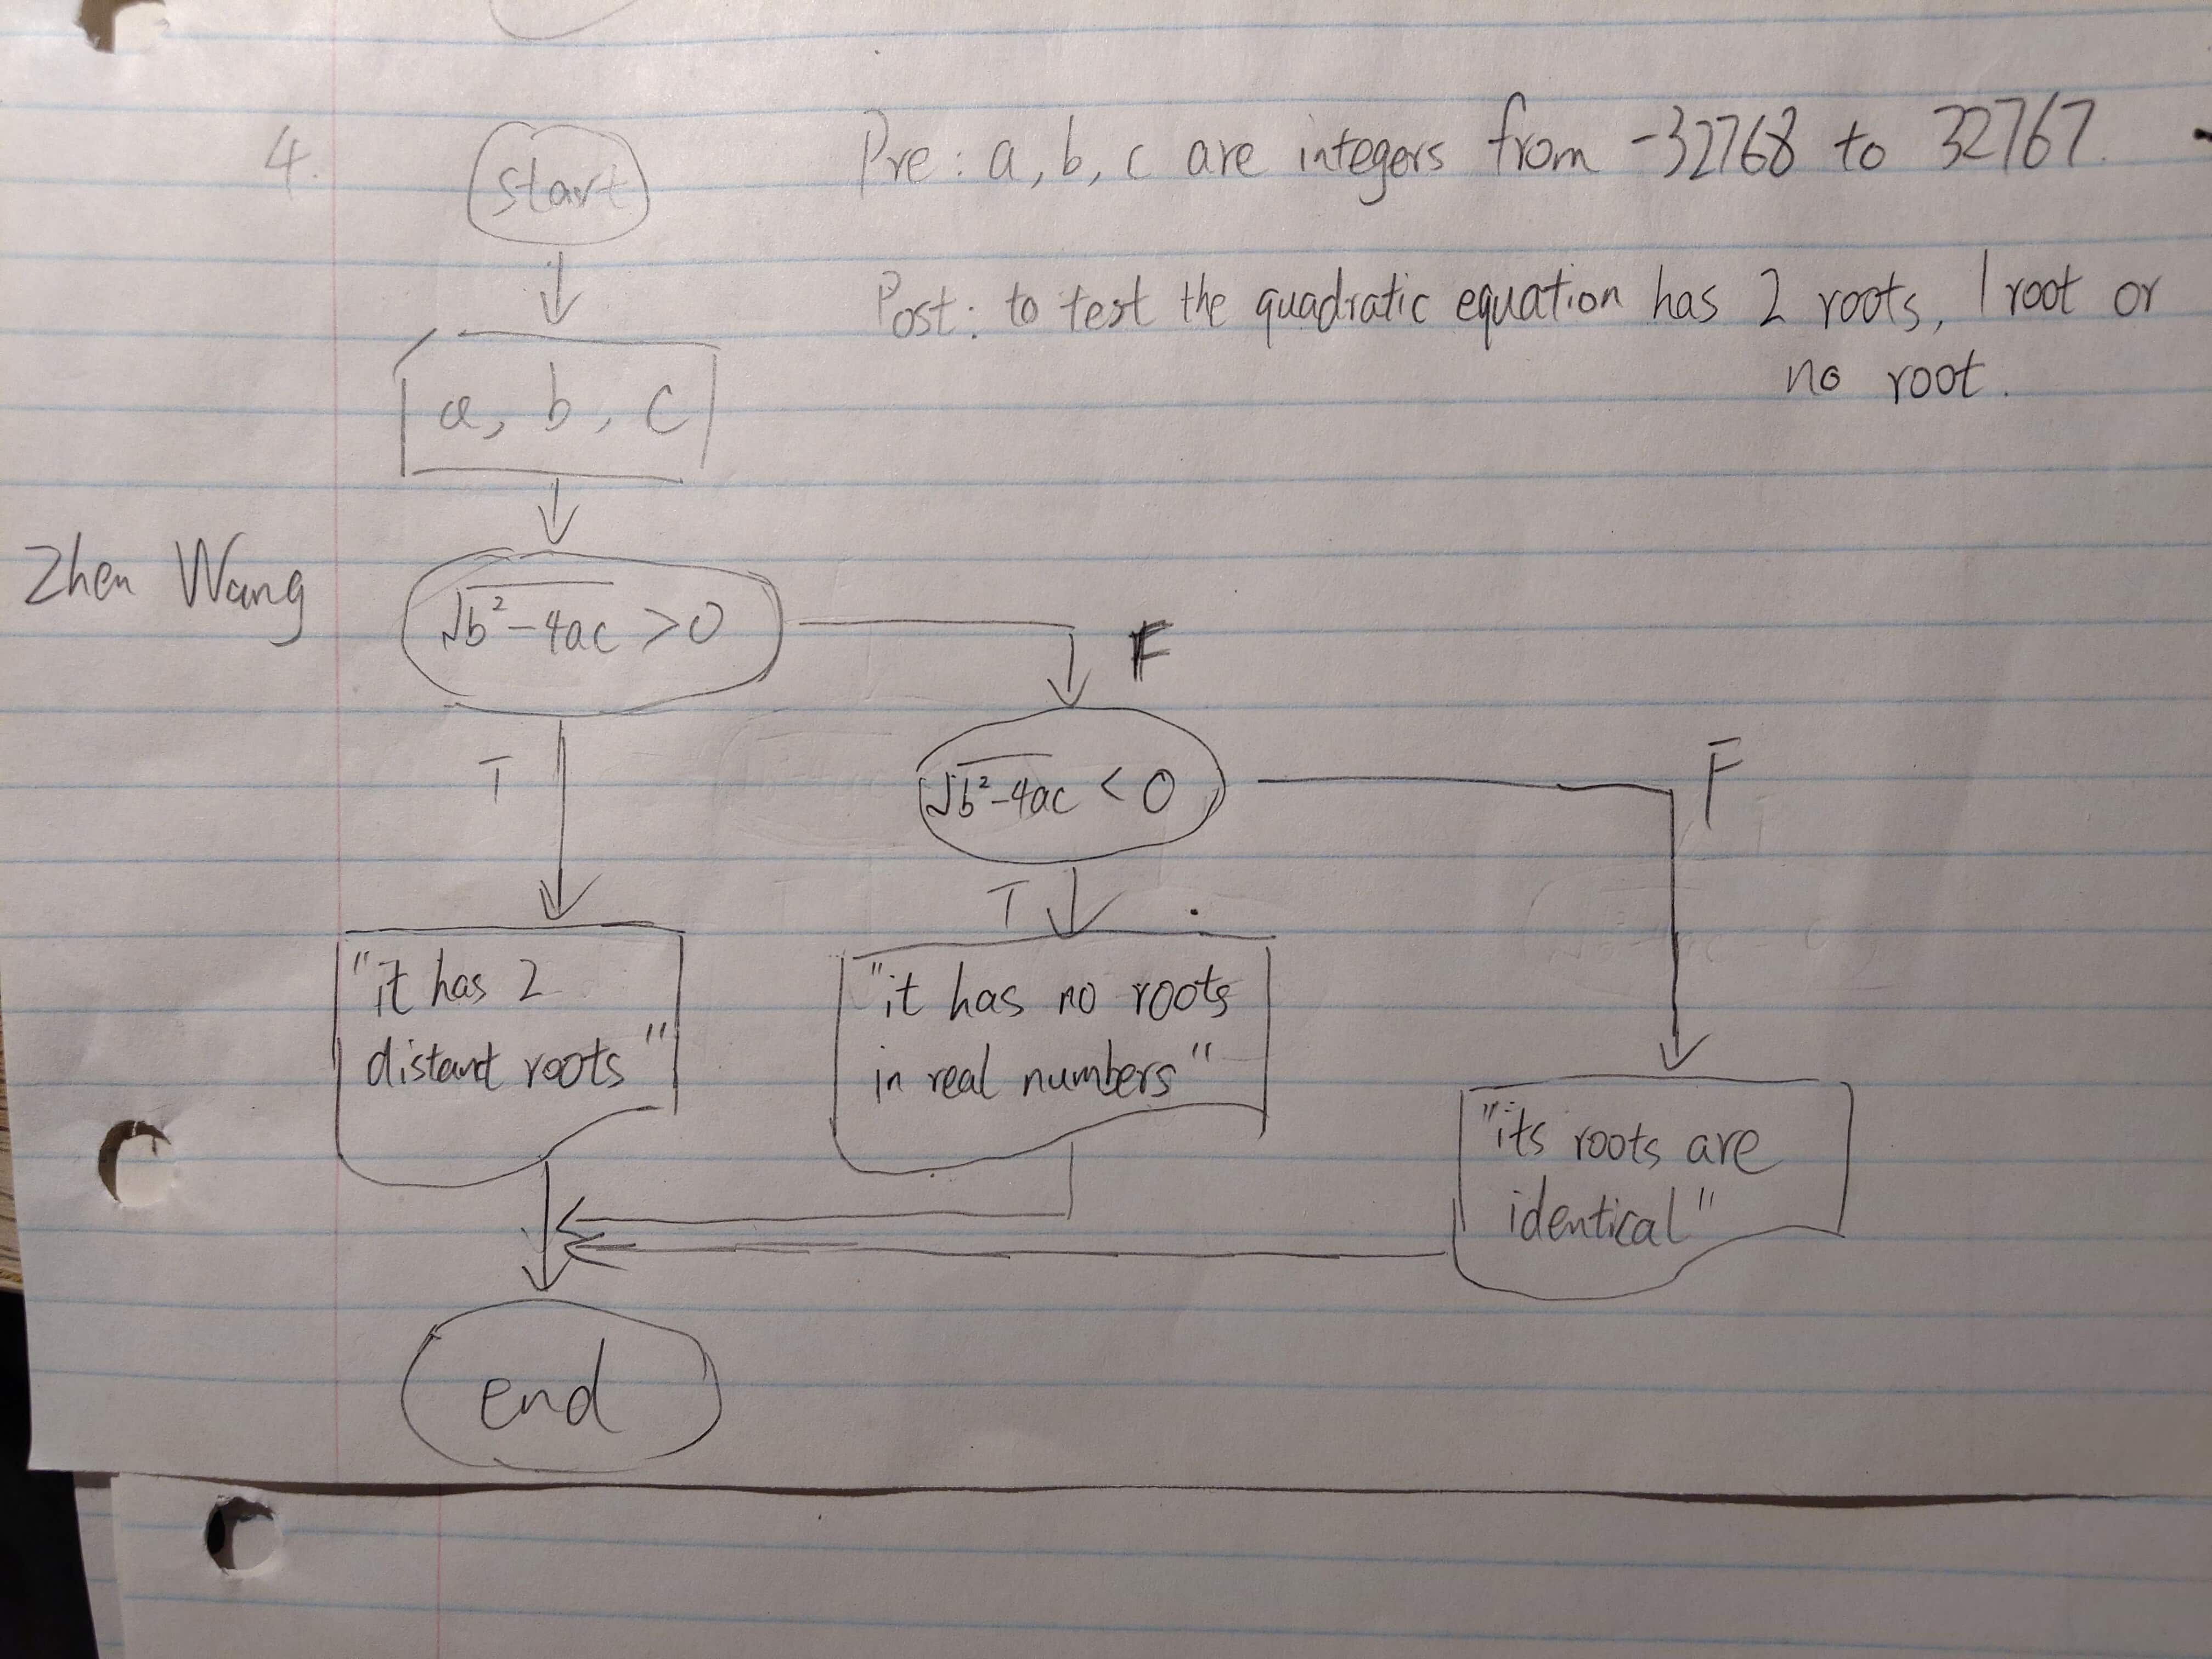 4.
start
Pre: a, b, c are integers from -32768 to 32767.
Post: to test the quadratic equation has 2 roots, 1 root or
no root.
a, b, c
Zhen Wang
√b²-4ac >0
F
T
√b²-4ac < 0
F
T
"it has 2
distant roots"
"it has no roots
in real numbers"
"its roots are
identical"
end